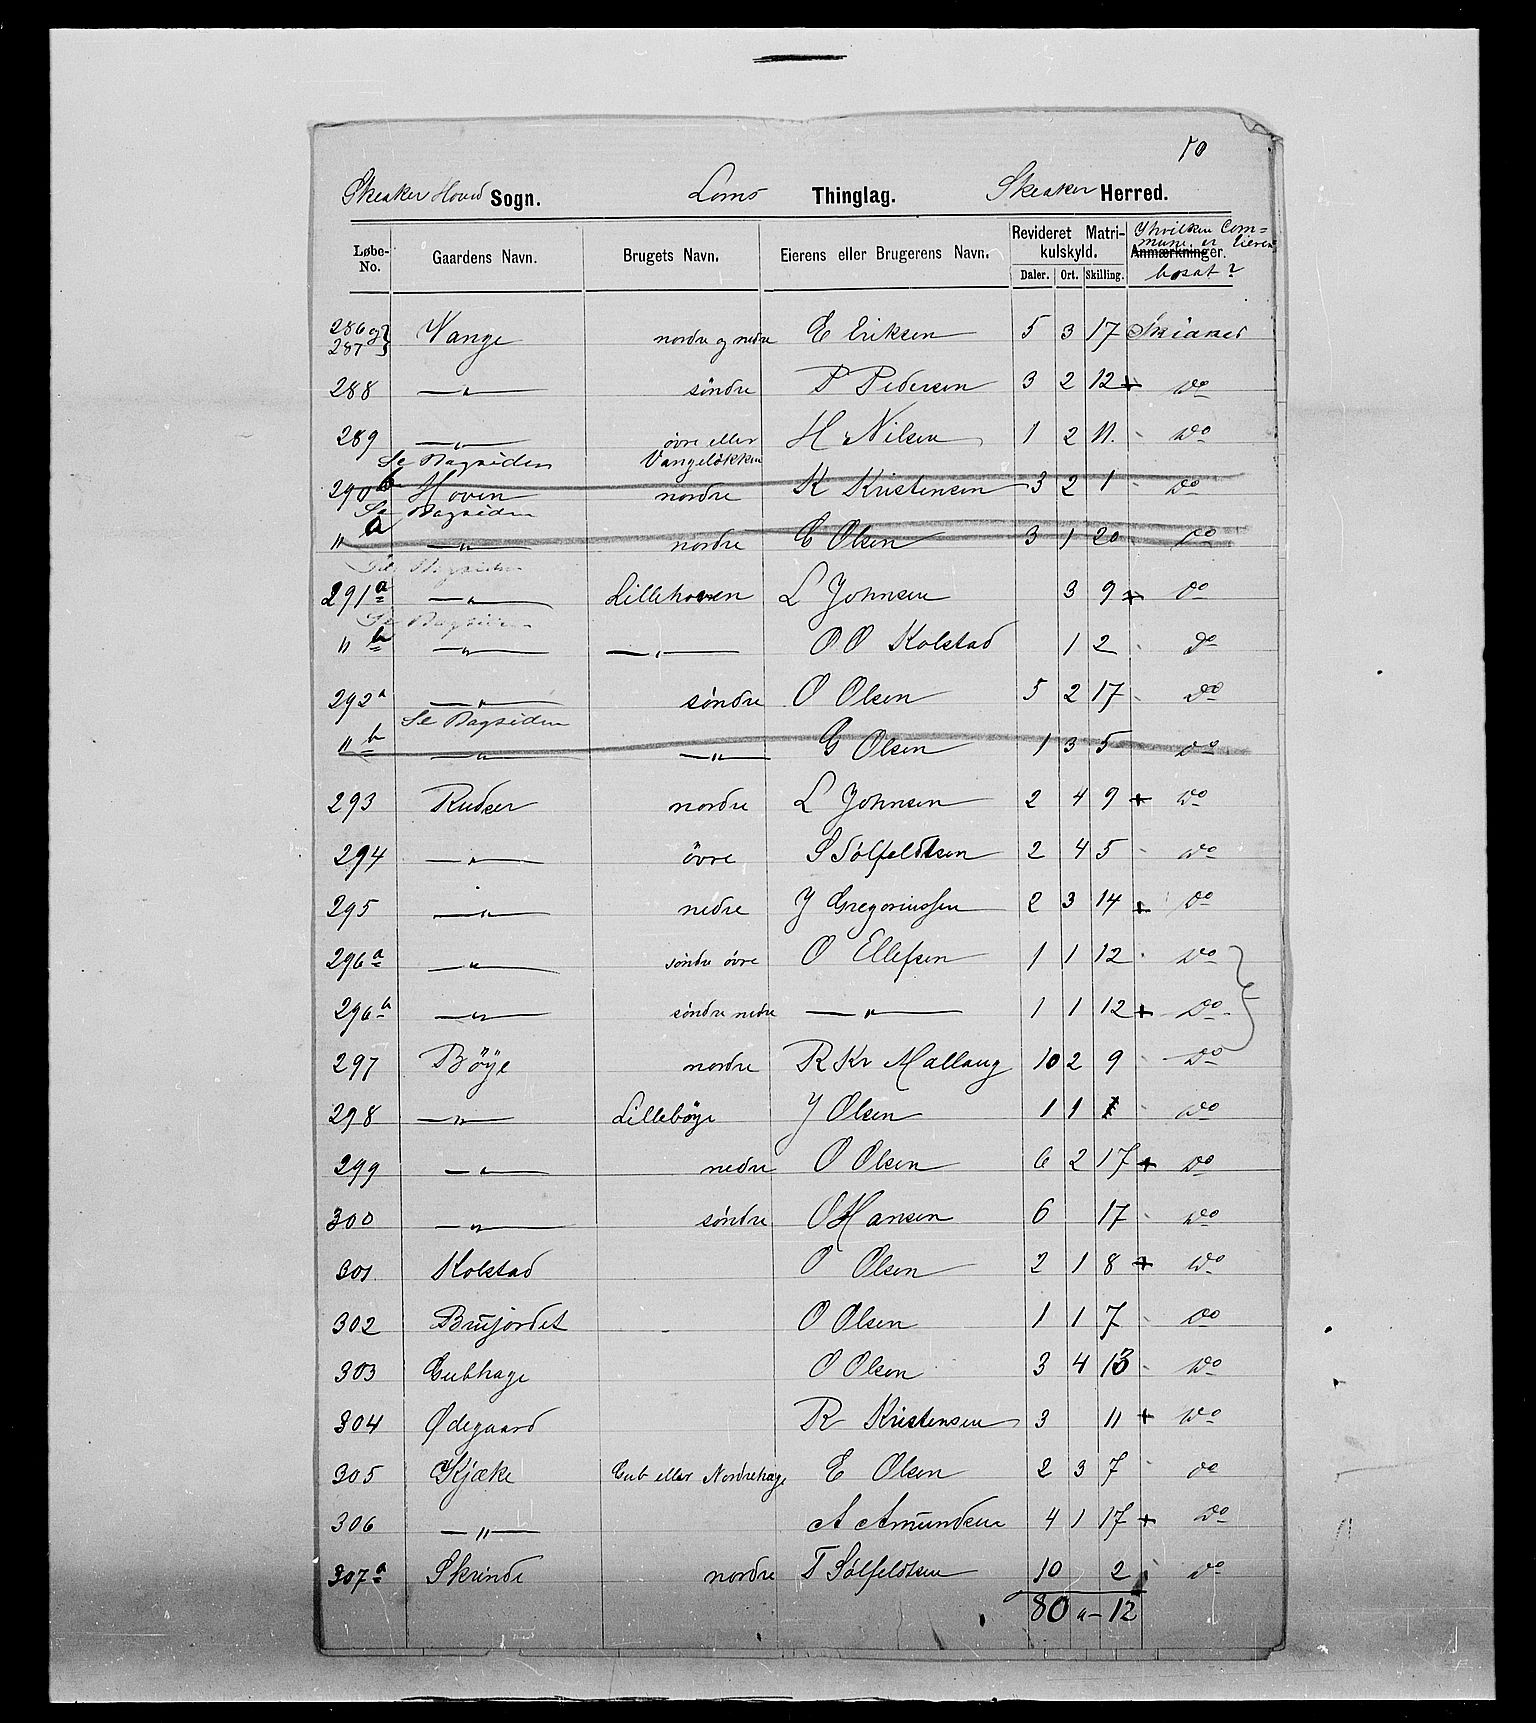 10
Skeaker Hoved Sogn. Loms Thinglag. Skeaker Herred.
Løbe-No. Gaardens Navn. Brugets Navn. Eierens eller Brugerens Navn. Revideret Matrikulskyld. Daler. Ort. Skilling. Anmærkninger. I hvilken Commune er Eieren bosat?
286 og 287 Vange nordre og nedre E Eriksen 5 3 17 Skiaker
288 —„— söndre P Pedersen 3 2 12 + do
289 —„— övre eller Vangelökken H Nilsen 1 2 11. do
Se Bagsiden
290 b Hoven nordre K Kristensen 3 2 1 do
Se Bagsiden
" a —„— nordre E Olsen 3 1 20 do
Se Bagsiden
291 a —„— Lillehoven L Johnsen 3 9 + do
Se Bagsiden
" b —„— —„— O O Kolstad 1 2 do
292 a —„— söndre O Olsen 5 2 17 do
Se Bagsiden
" b —„— —"— G Olsen 1 3 5 do
293 Rudser nordre L Johnsen 2 4 9 + do
294 —„— övre S Sölfeldtsen 2 4 5 do
295 —„— nedre J Gregoriussen 2 3 14 + do
296 a —„— söndre övre O Ellefsen 1 1 12 do
296 b —„— söndre nedre —„— 1 1 12 + do
297 Böye nordre R Kr Mallaug 10 2 9 do
298 —„— Lilleböye J Olsen 1 1 do
299 —„— nedre O Olsen 6 2 17 + do
300 —„— söndre O Hansen 6 17 do
301 Kolstad O Olsen 2 1 8 + do
302 Brujordet O Olsen 1 1 7 do
303 Cubhage O Olsen 3 4 13 do
304 Ødegaard R Kristensen 3 11 + do
305 Kjæke Cub eller Nordrehage E Olsen 2 3 7 do
306 —"— A Amundsen 4 1 17 + do
307 a Skrinde nordre T Sölfeldtsen 10 2 do
80 „— 12